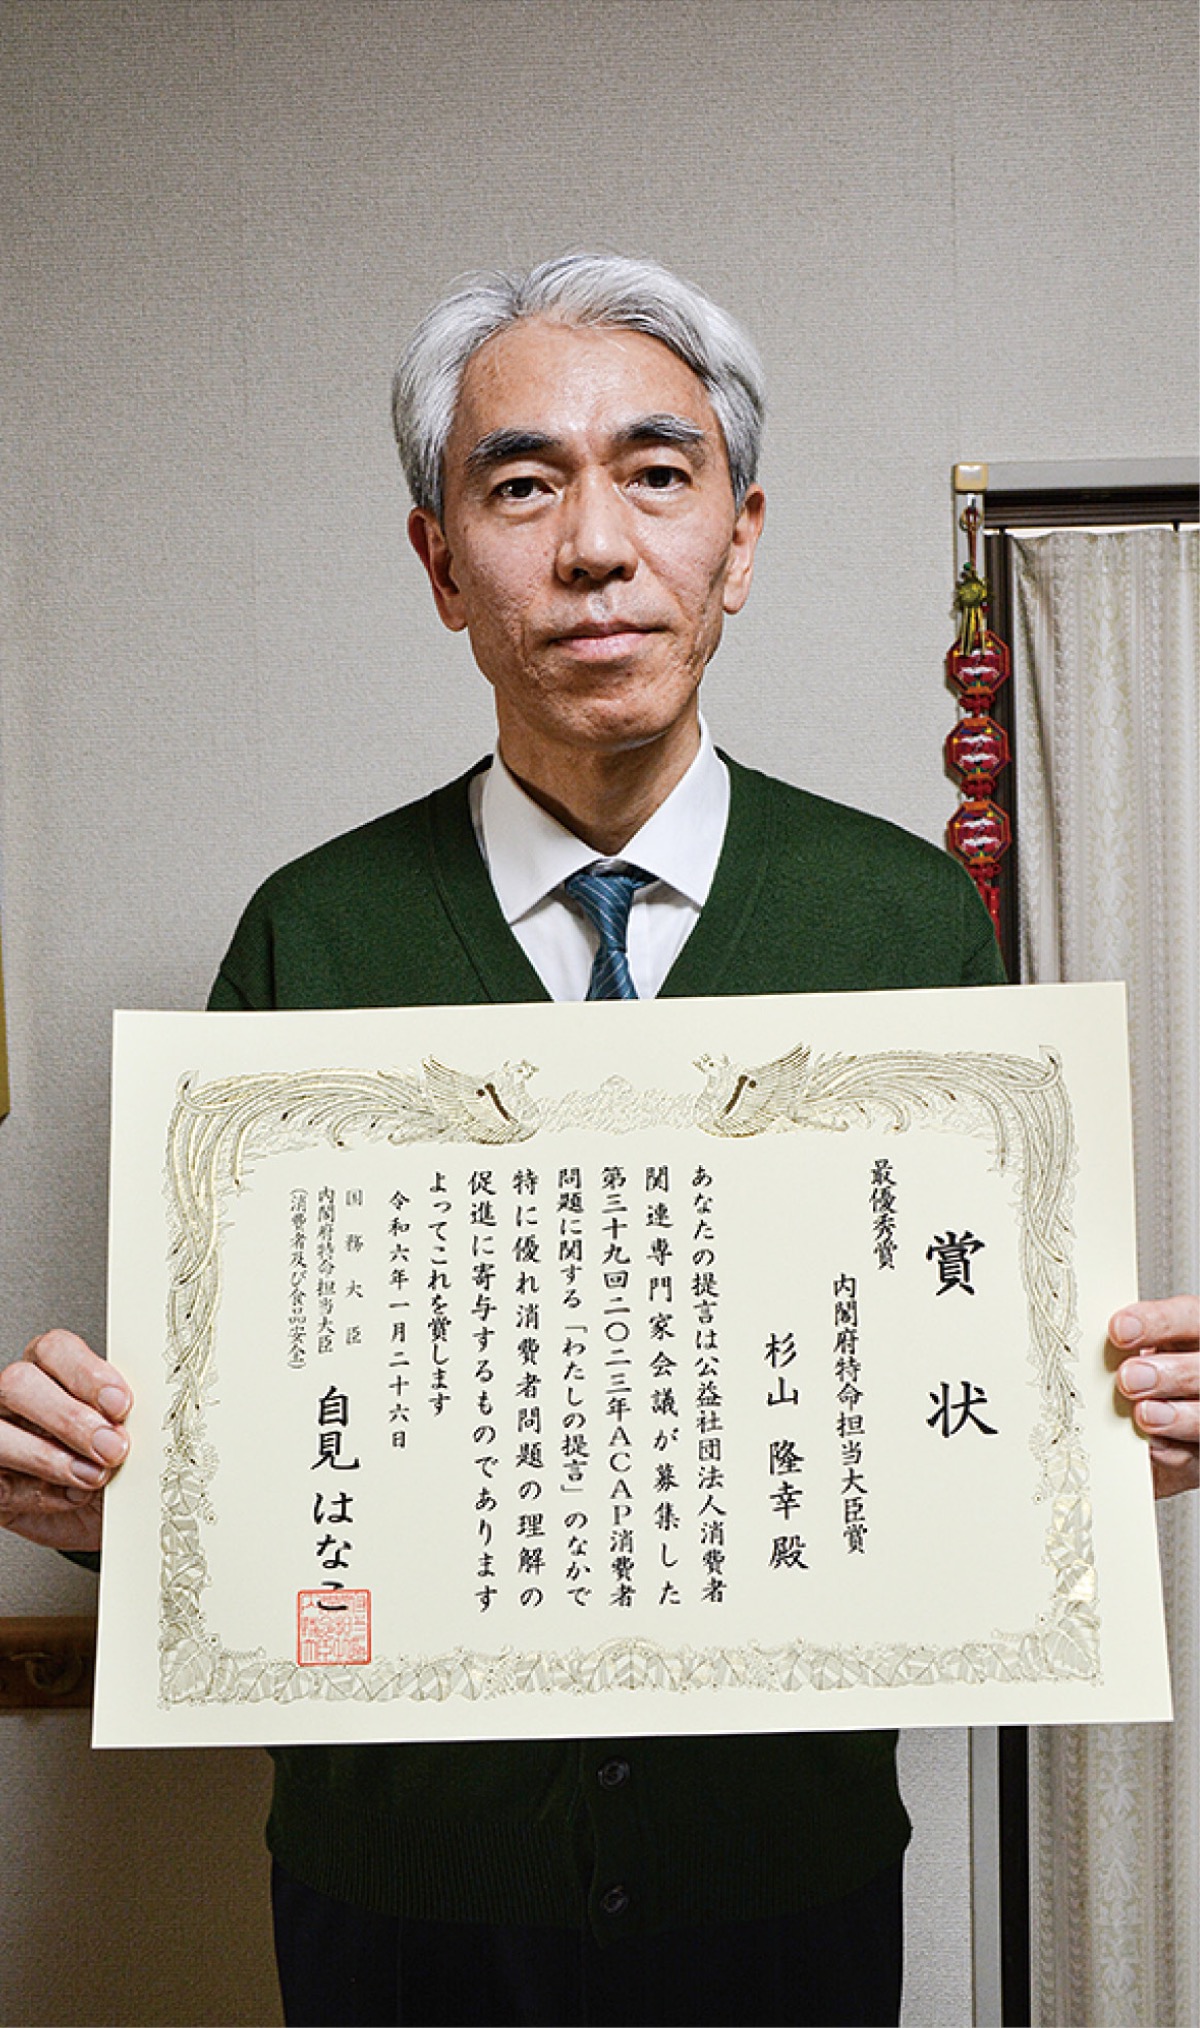 賞状
最優秀賞
内閣府特命担当大臣賞
杉山 隆幸 殿
あなたの提言は公益社団法人消費者
関連専門家会議が募集した
第三十九回二〇二三年ACAP消費者
問題に関する「わたしの提言」のなかで
特に優れ消費者問題の理解の
促進に寄与するものであります
よってこれを賞します
令和六年一月二十六日
国務大臣
内閣府特命担当大臣
(消費者及び食品安全)
自見 はなこ